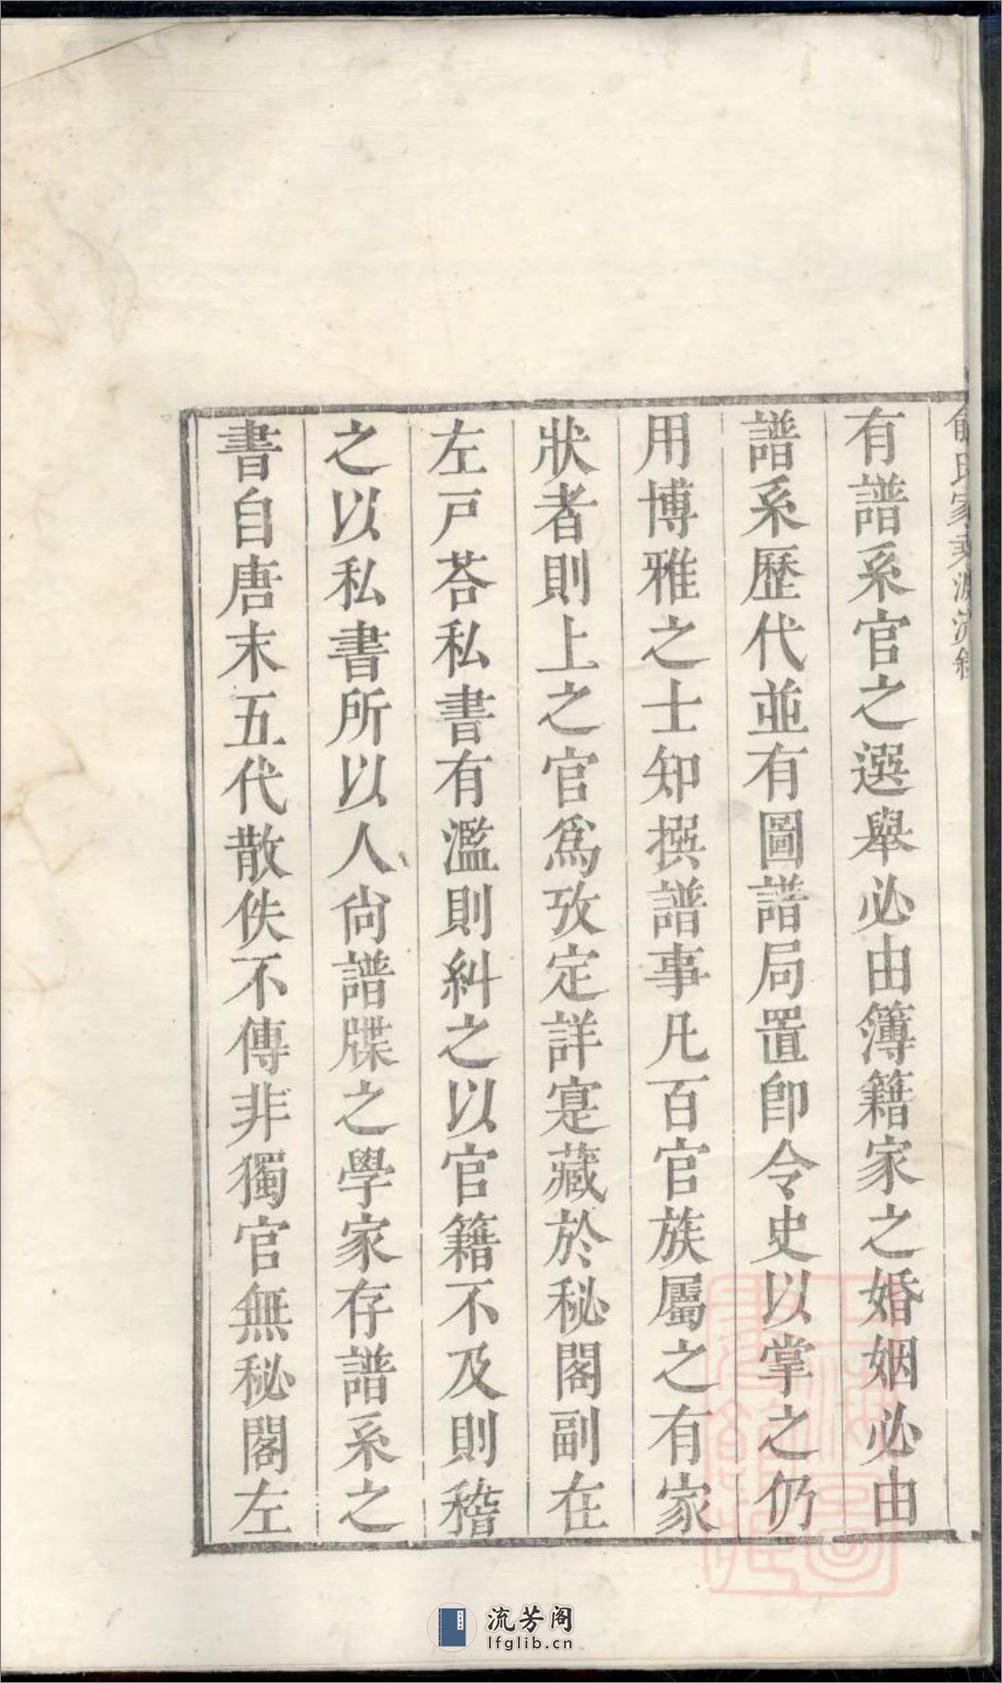 俞氏家乘源流錄
有譜系官之選舉必由簿籍家之婚姻必由
譜系歷代並有圖譜局置郎令史以掌之仍
用博雅之士知撰譜事凡百官族屬之有家
狀者則上之官爲攷定詳寔藏於秘閣副在
左戸荅私書有濫則糾之以官籍不及則稽
之以私書所以人尙譜牒之學家存譜系之
書自唐末五代散佚不傳非獨官無秘閣左
流芳阁
lfglib.cn